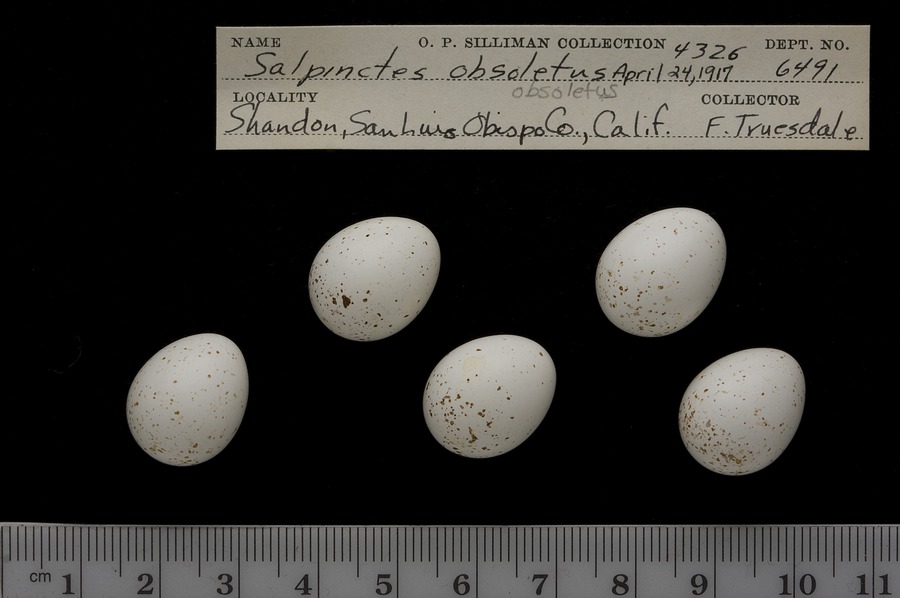 NAME O. P. SILLIMAN COLLECTION 4326 DEPT. NO.
Salpinctes obsoletus April 24, 1917 6491
obsoletus
LOCALITY COLLECTOR
Shandon, San Luis Obispo Co., Calif. F. Truesdale
cm 1 2 3 4 5 6 7 8 9 10 11